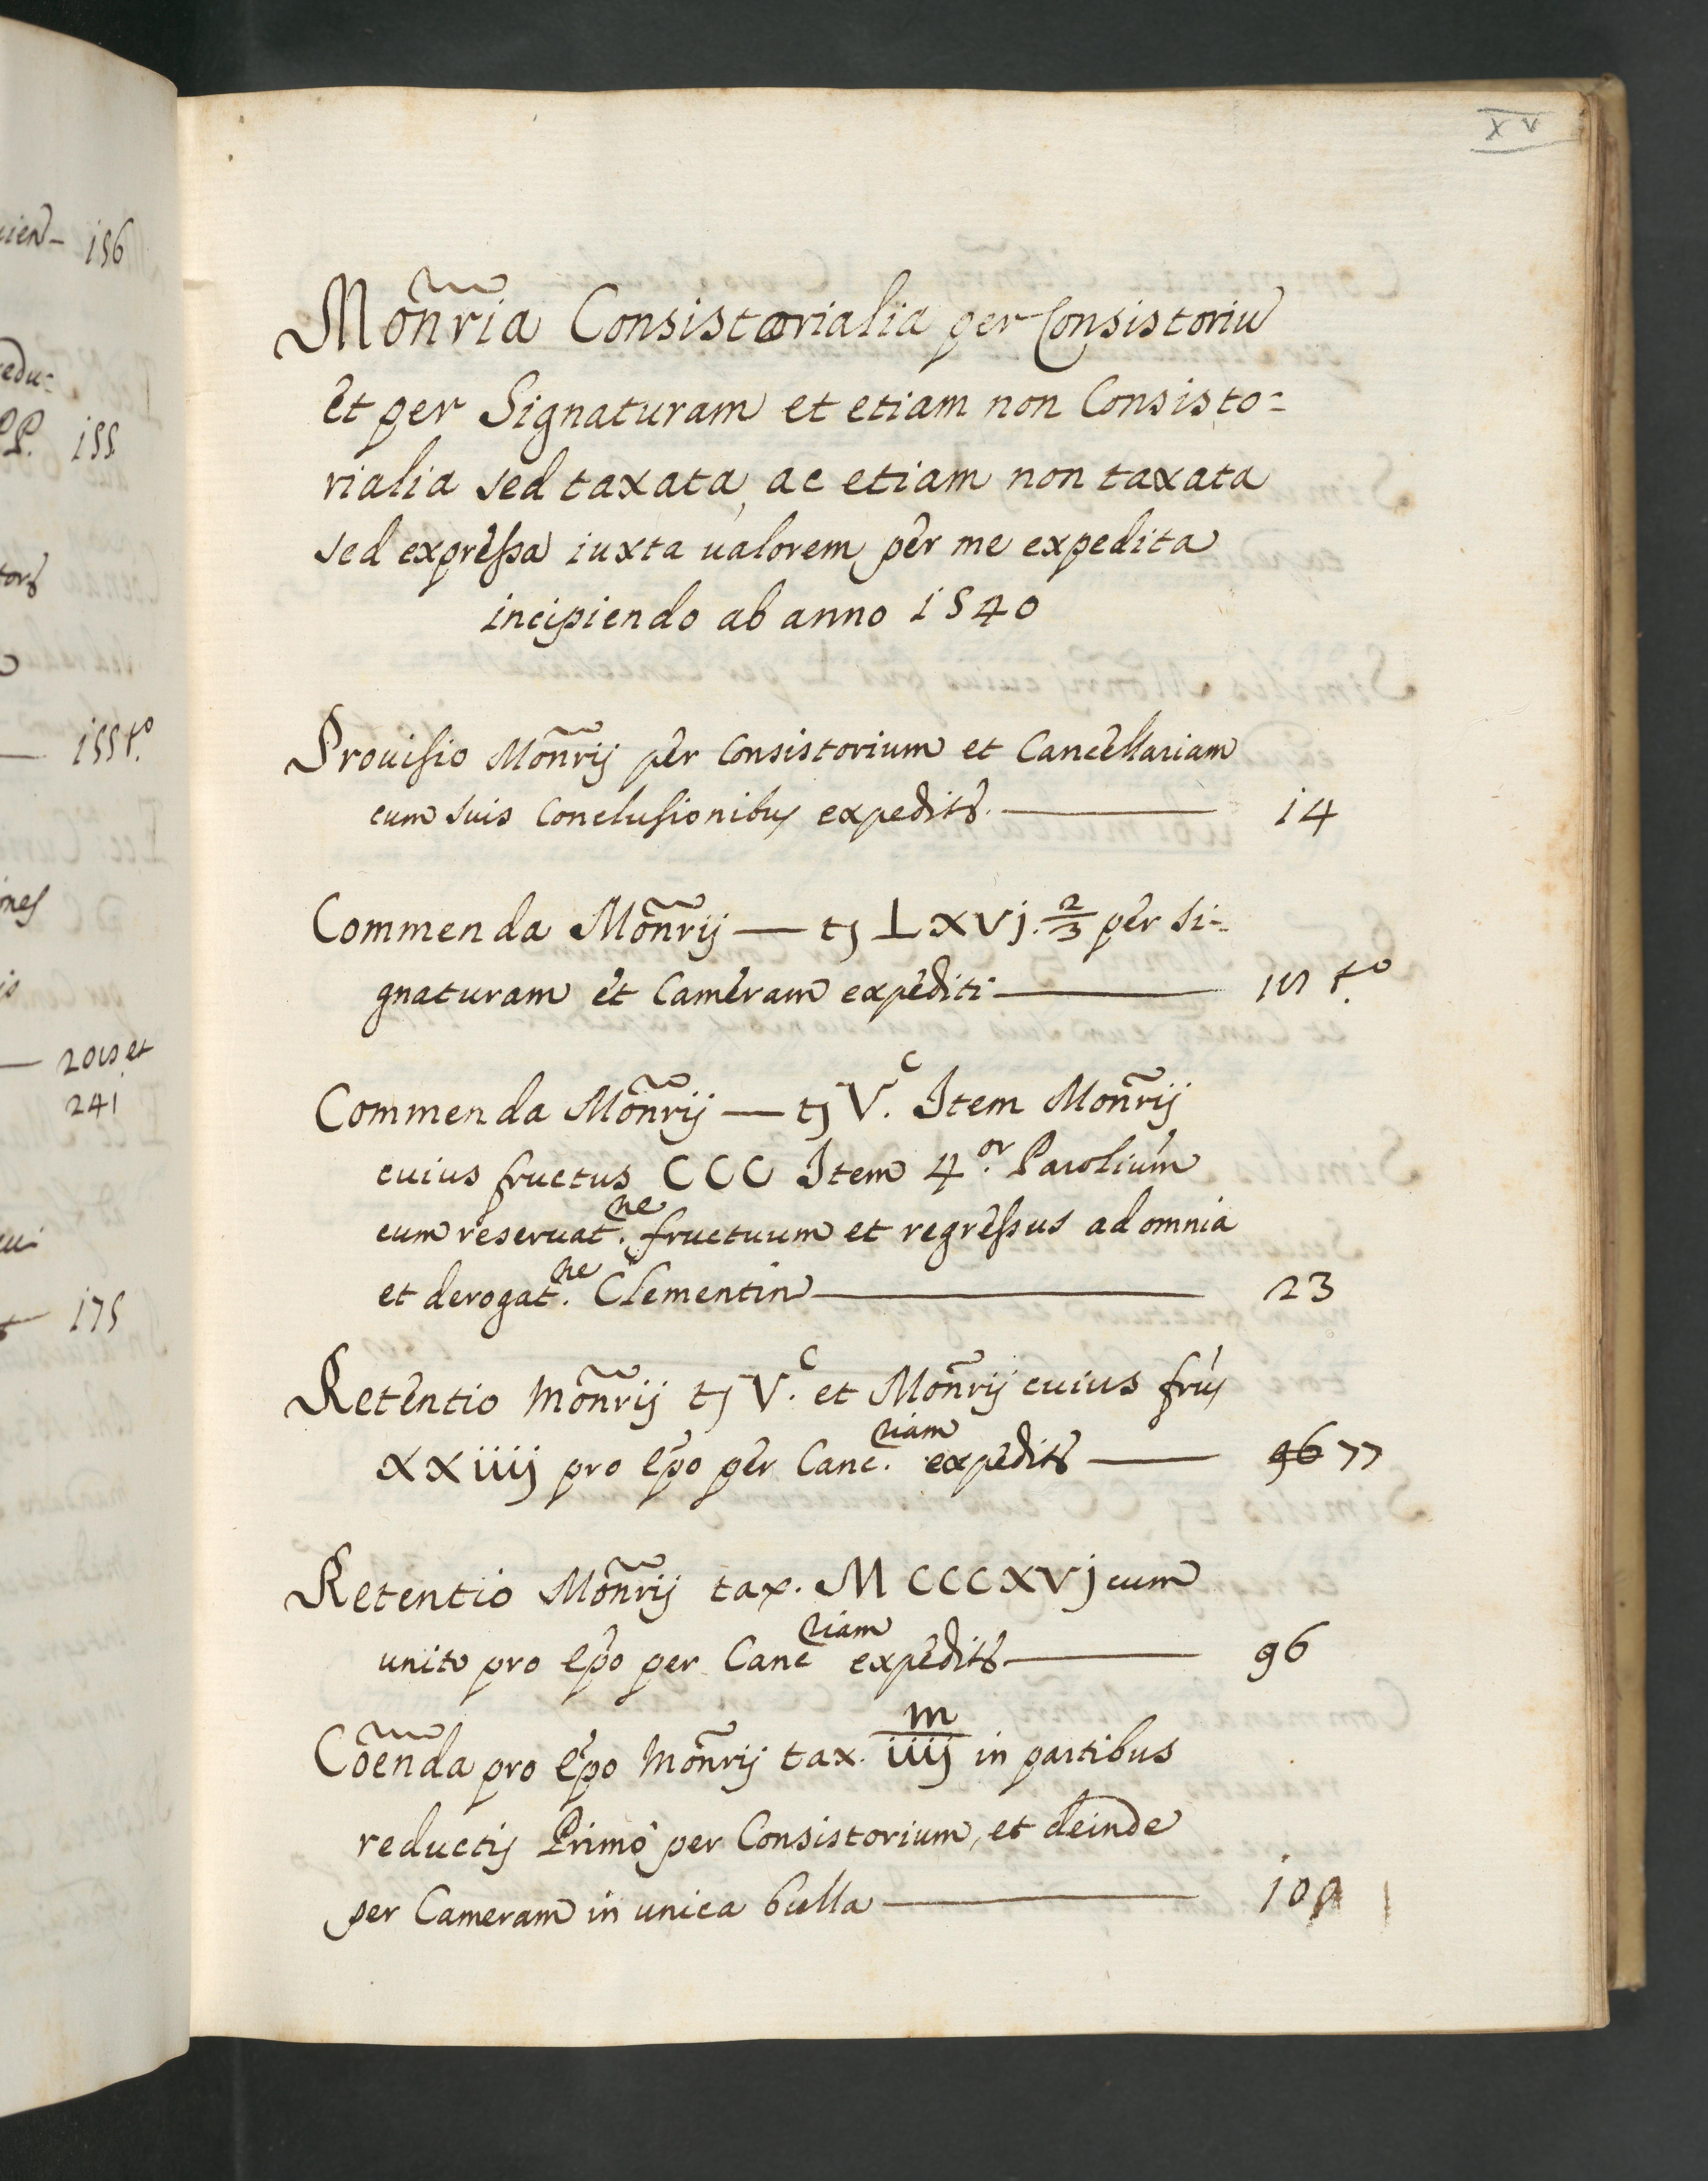 XV
ien 156
edu:
PP. 155
155 t.o
ones
— 2018 et
241
175
Mon̄ria Consistorialia per Consistoriū
et per Signaturam et etiam non Consisto=
rialia sed taxata, ac etiam non taxata
sed expressa iuxta ualorem per me expedita
incipiendo ab anno 1540
Prouisio Mon̄rij per Consistorium et Cancellariam
cum suis Conclusionibus expedit̃. — 14
Commenda Mon̄rij — tȷ LXVj. 2/3 per si=
gnaturam et Cameram expediti — t.o
Commenda Mon̄rij — tȷ V.c Item Mon̄rij
cuius fructus CCC Item 4.or Parolium
cum reseruat.ne fructuum et regressus ad omnia
et derogat.ne Clementin — 23
Retentio Mon̄rij tȷ V.c et Mon̄rij cuius frus
XXiiij pro ep̄o per Canc.riam expedit̃ — 96 77
Retentio Mon̄rij tax. M CCCXVj cum
unito pro ep̄o per Cancriam expedit̃ — 96
Com̄enda pro ep̄o Mon̄rij tax. iiijm in partibus
reductis Primo per Consistorium, et deinde
per Cameram in unica bulla — 10